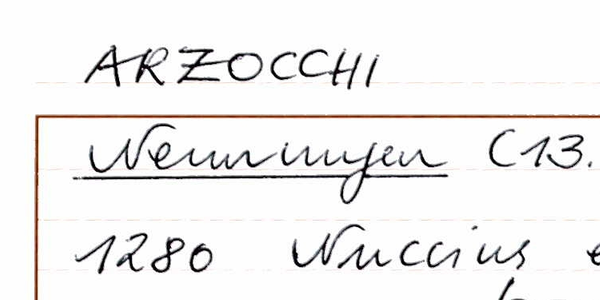 ARZOCCHI
Nennungen (13.
1280 Nuccius